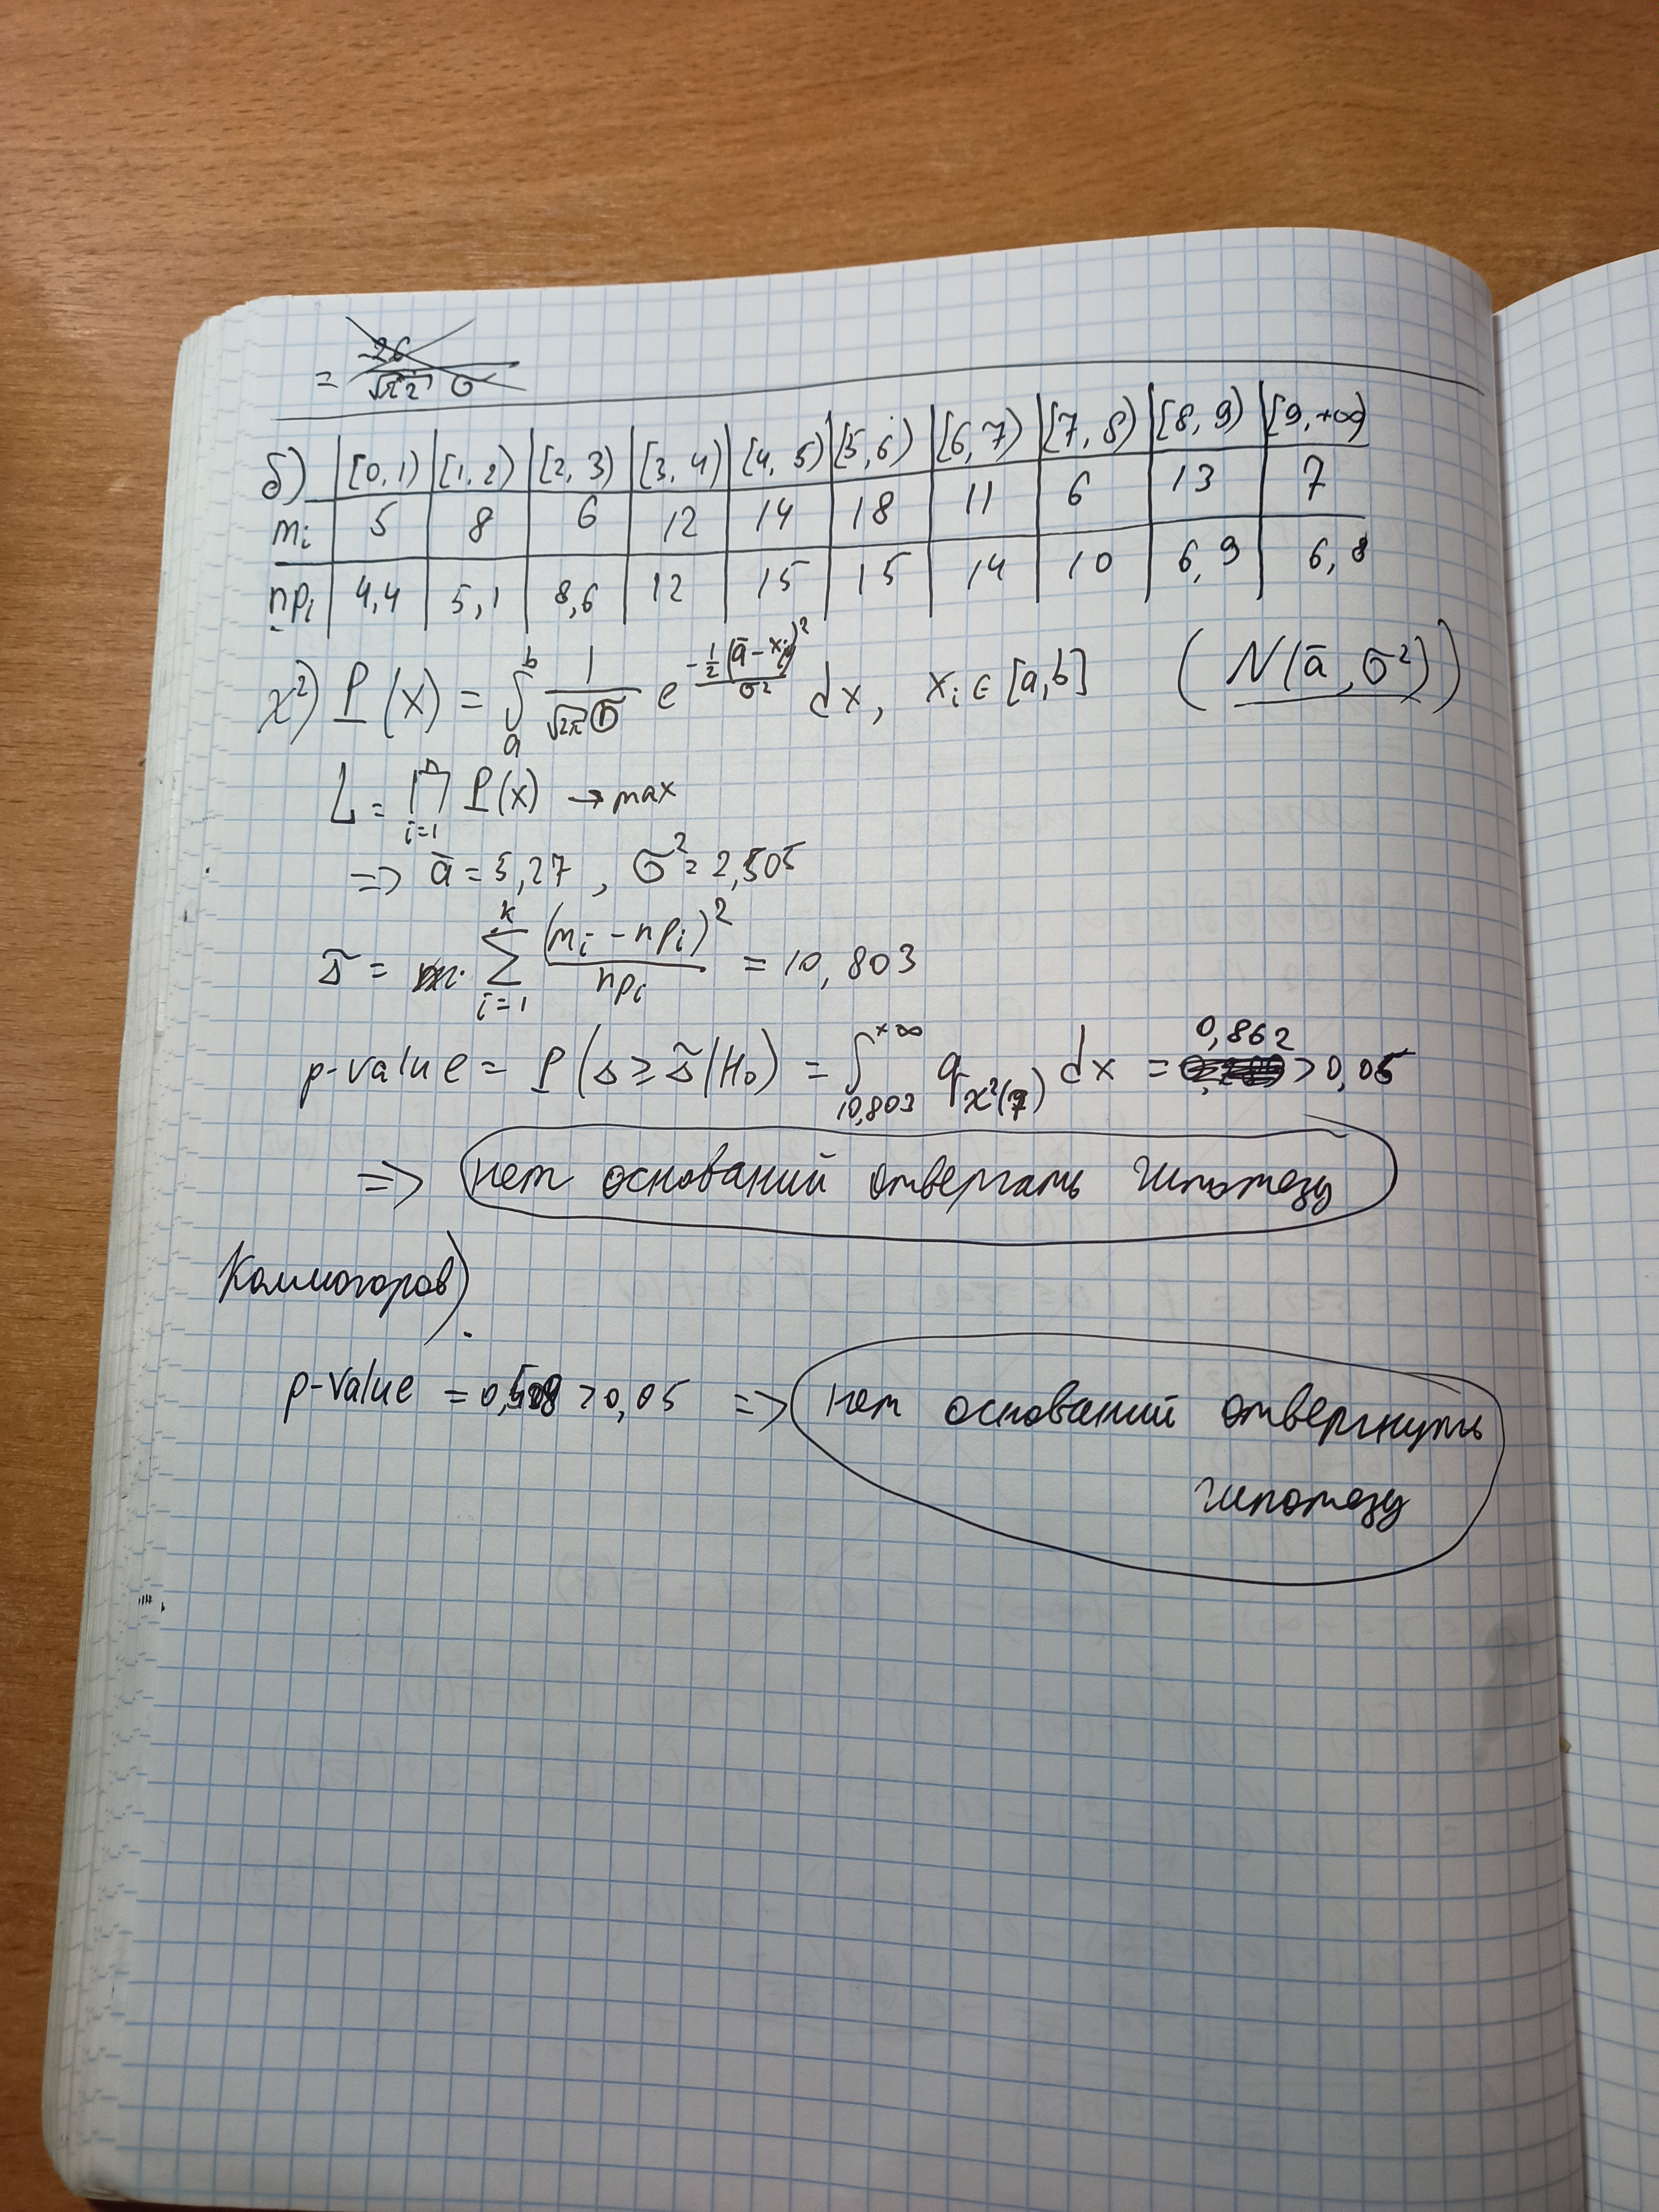 =
б) [0, 1) [1, 2) [2, 3) [3, 4) [4, 5) [5, 6) [6, 7) [7, 8) [8, 9) [9, +∞)
mᵢ 5 8 6 12 14 18 11 6 13 7
npᵢ 4,4 5,1 8,6 12 15 15 14 10 6,9 6,8
χ²) P(x) = ∫ₐᵇ 1/(√2π σ) e^(-1/2 (ā - xᵢ)²/σ²) dx, xᵢ ∈ [a, b] (N(ā, σ²))
L = ∏ᵢ₌₁ⁿ P(x) → max
=> ā = 5,27, σ² = 2,505
s̃ = ∑ᵢ₌₁ᵏ (mᵢ - npᵢ)²/npᵢ = 10,803
p-value = P(s ≥ s̃ | H₀) = ∫_(10,803)^(+∞) q_χ²(7) dx = 0,862 > 0,05
=> нет оснований отвергать гипотезу
Колмогоров)
p-value = > 0,05 => нет оснований отвергнуть
гипотезу